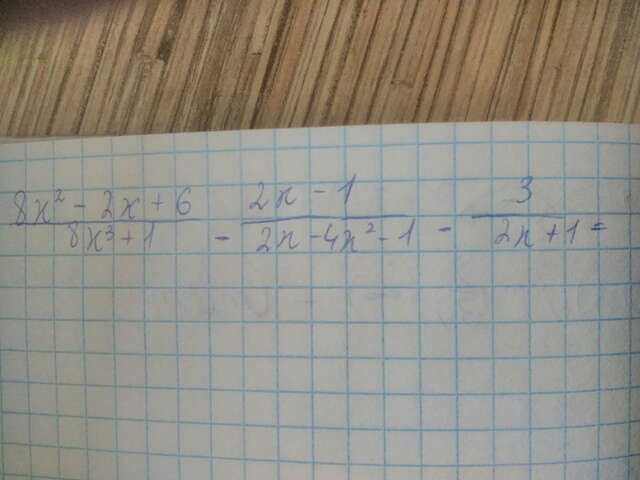 8x² - 2x + 6 / 8x³ + 1 - 2x - 1 / 2x - 4x² - 1 - 3 / 2x + 1 =